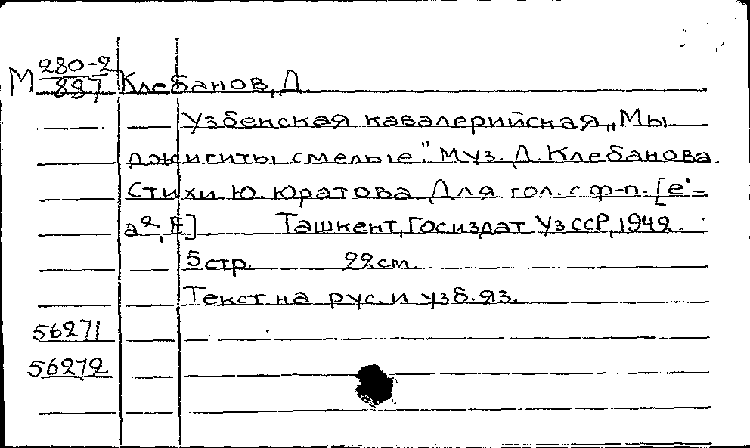 М 280-2
887 Клебанов, Д.
Узбекская кавалерийская „Мы
джигиты смелые." Муз. Д. Клебанова.
Стихи Ю. Юратова. Для гол. с ф-п. [e'-
a², E] Ташкент, Госиздат УзССР, 1942.
5 стр. 22 см.
Текст на рус. и узб. яз.
56271
56272